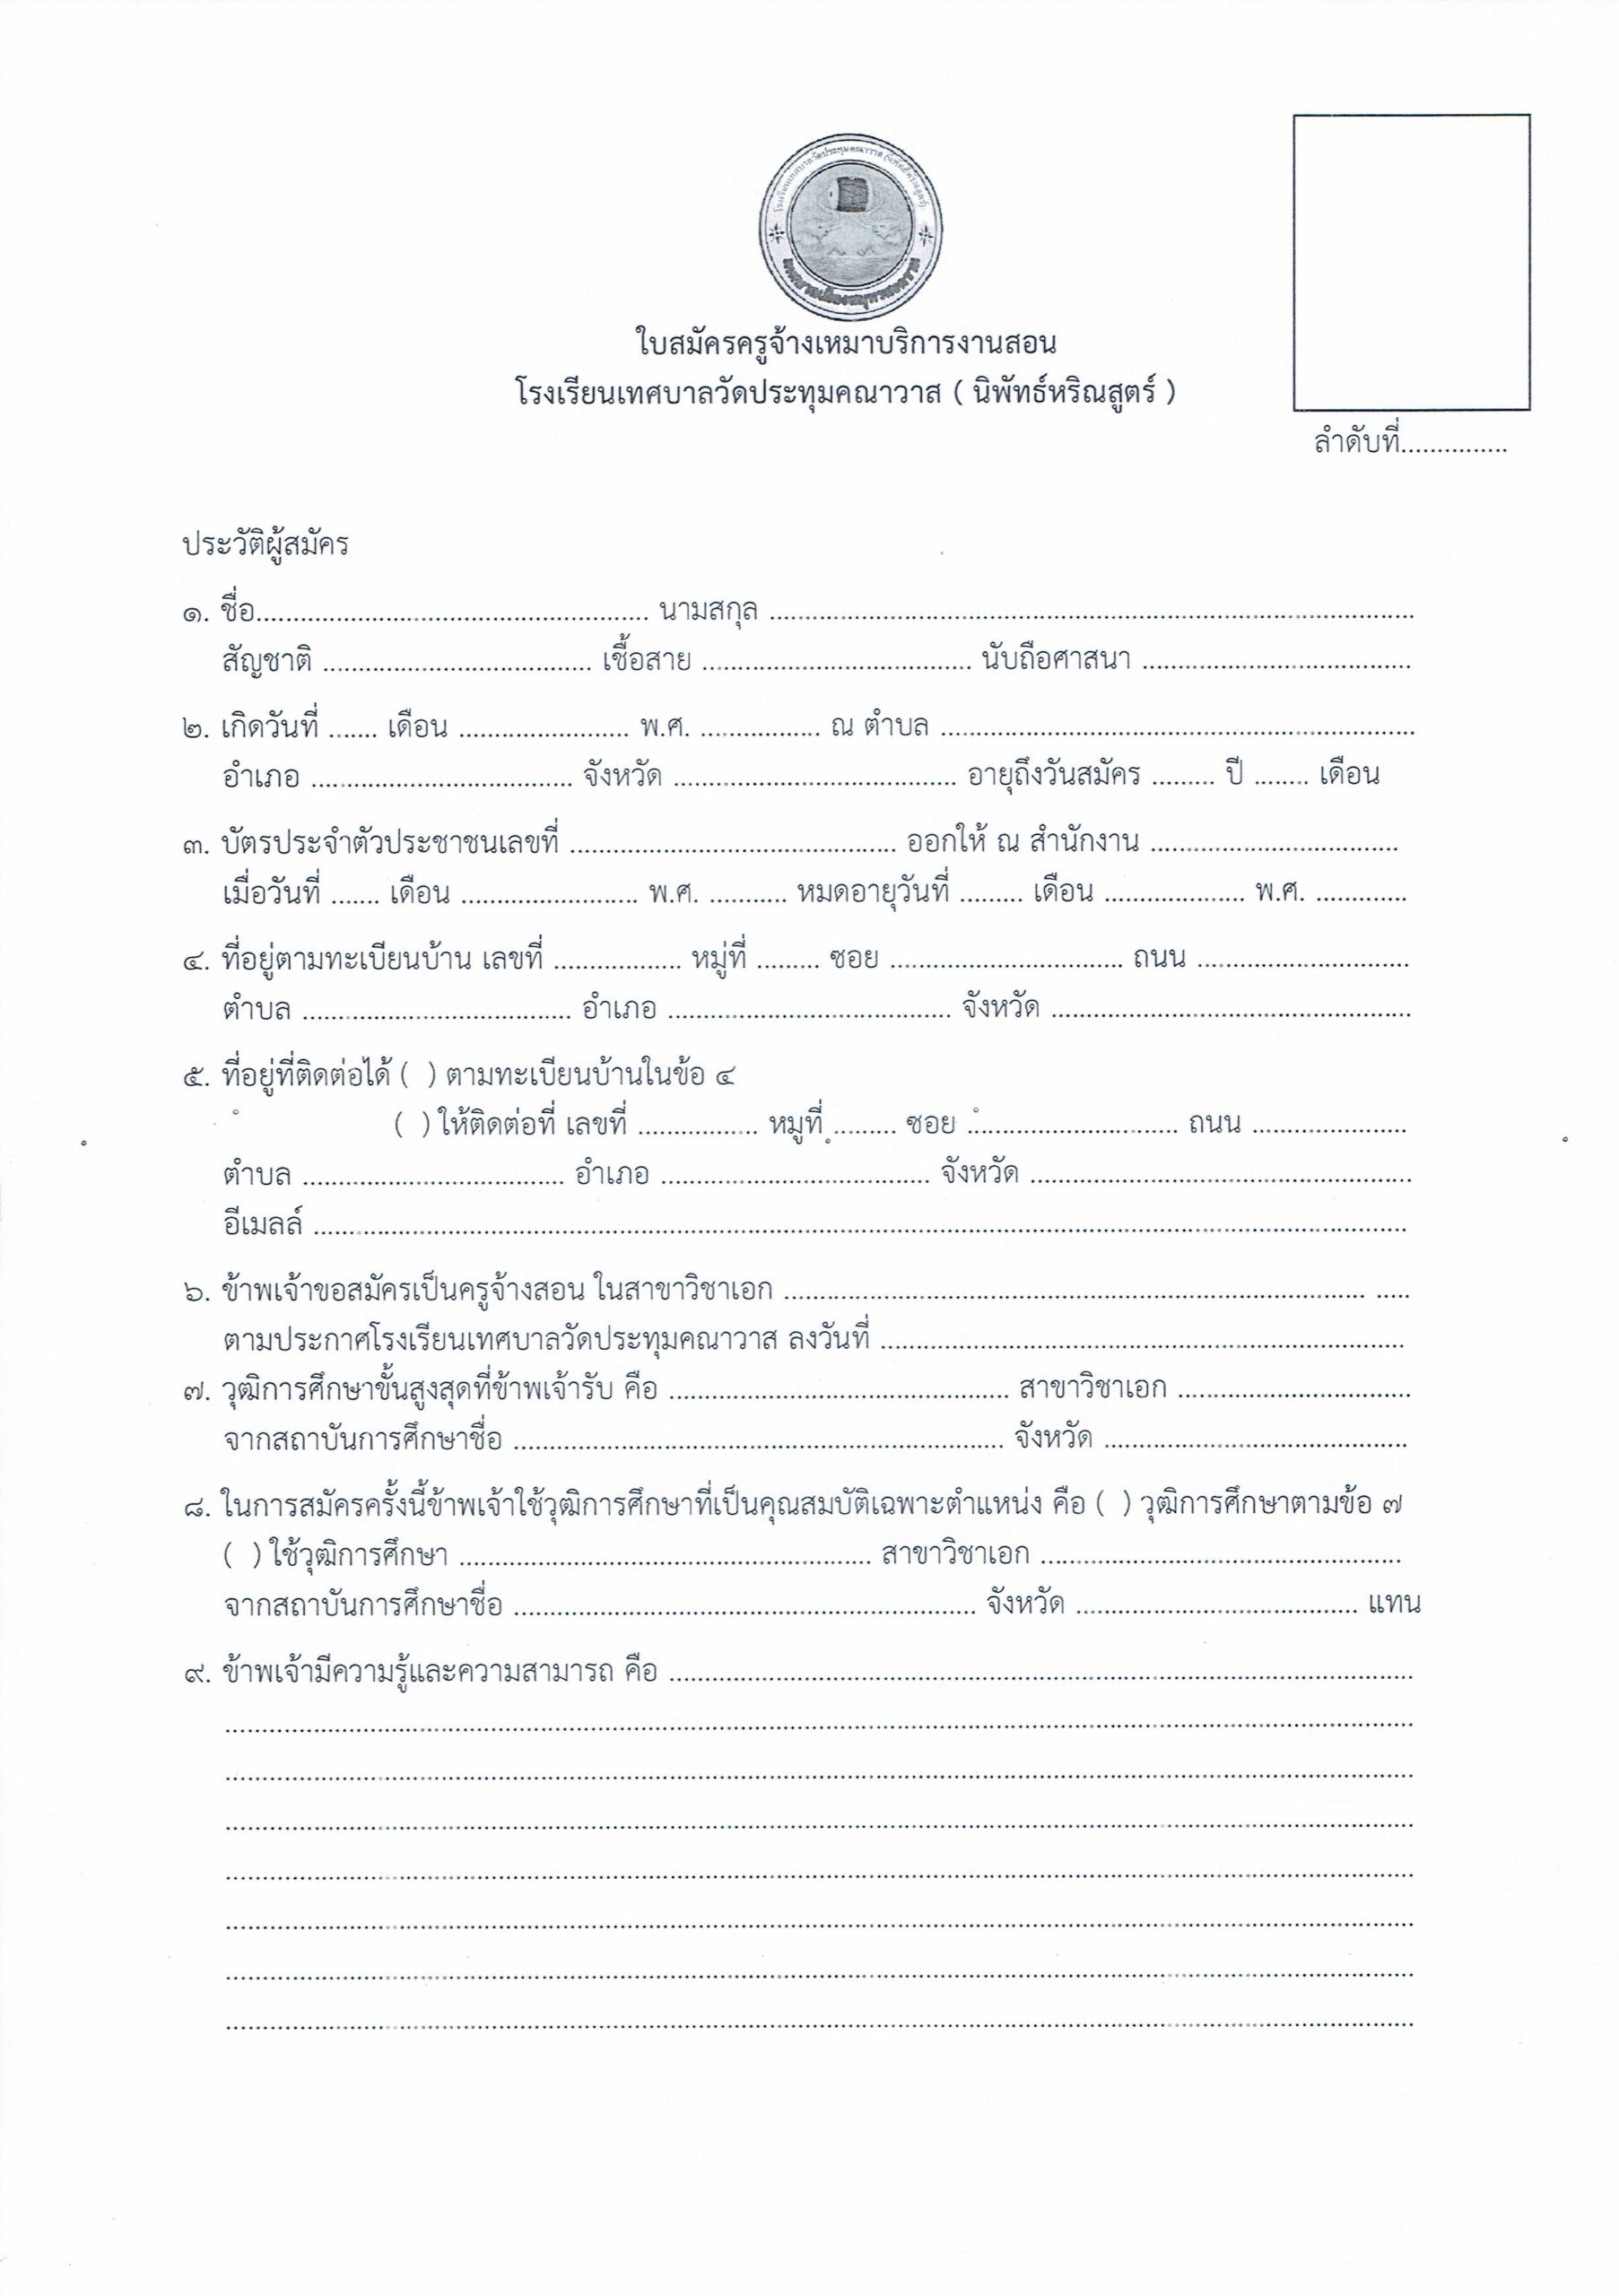 โรงเรียนเทศบาลวัดประทุมคณาวาส (นิพัทธ์หริณสูตร์)
เทศบาลเมืองสมุทรสงคราม
ใบสมัครครูจ้างเหมาบริการงานสอน
โรงเรียนเทศบาลวัดประทุมคณาวาส ( นิพัทธ์หริณสูตร์ )
ลำดับที่...............
ประวัติผู้สมัคร
๑. ชื่อ....................................................... นามสกุล ...........................................................................................
สัญชาติ ...................................... เชื้อสาย ...................................... นับถือศาสนา ......................................
๒. เกิดวันที่ ....... เดือน ........................ พ.ศ. ................. ณ ตำบล ...................................................................
อำเภอ ..................................... จังหวัด ........................................ อายุถึงวันสมัคร ......... ปี ........ เดือน
๓. บัตรประจำตัวประชาชนเลขที่ .............................................. ออกให้ ณ สำนักงาน ...................................
เมื่อวันที่ ....... เดือน ......................... พ.ศ. ........... หมดอายุวันที่ ......... เดือน .................... พ.ศ. .............
๔. ที่อยู่ตามทะเบียนบ้าน เลขที่ .................. หมู่ที่ ......... ซอย ................................. ถนน ..............................
ตำบล ...................................... อำเภอ ........................................ จังหวัด ...................................................
๕. ที่อยู่ที่ติดต่อได้ (  ) ตามทะเบียนบ้านในข้อ ๔
(  ) ให้ติดต่อที่ เลขที่ ................. หมูที่ ......... ซอย .............................. ถนน ......................
ตำบล ..................................... อำเภอ ...................................... จังหวัด ......................................................
อีเมลล์ ..........................................................................................................................................................
๖. ข้าพเจ้าขอสมัครเป็นครูจ้างสอน ในสาขาวิชาเอก .................................................................................. .....
ตามประกาศโรงเรียนเทศบาลวัดประทุมคณาวาส ลงวันที่ ..........................................................................
๗. วุฒิการศึกษาขั้นสูงสุดที่ข้าพเจ้ารับ คือ ................................................ สาขาวิชาเอก .................................
จากสถาบันการศึกษาชื่อ ..................................................................... จังหวัด ...........................................
๘. ในการสมัครครั้งนี้ข้าพเจ้าใช้วุฒิการศึกษาที่เป็นคุณสมบัติเฉพาะตำแหน่ง คือ (  ) วุฒิการศึกษาตามข้อ ๗
(  ) ใช้วุฒิการศึกษา .......................................................... สาขาวิชาเอก ...................................................
จากสถาบันการศึกษาชื่อ ................................................................. จังหวัด ........................................ แทน
๙. ข้าพเจ้ามีความรู้และความสามารถ คือ .........................................................................................................
........................................................................................................................................................................
........................................................................................................................................................................
........................................................................................................................................................................
........................................................................................................................................................................
........................................................................................................................................................................
........................................................................................................................................................................
........................................................................................................................................................................